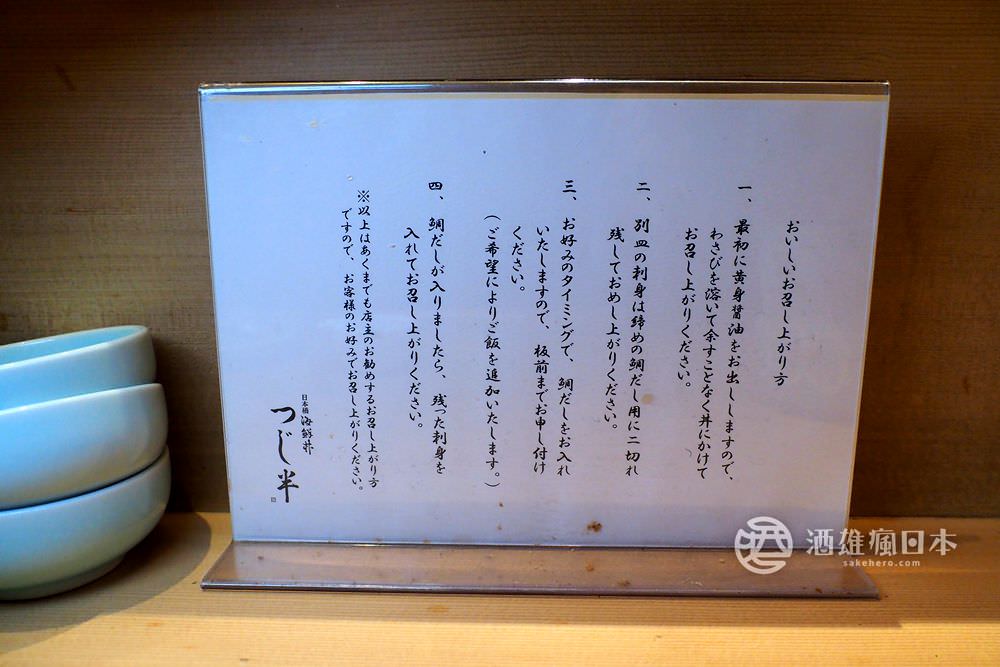 おいしいお召し上がり方
一、最初に黄身醤油をお出ししますので、
わさびを溶いて余すことなく丼にかけて
お召し上がりください。
二、別皿の刺身は締めの鯛だし用に二切れ
残しておめし上がりください。
三、お好みのタイミングで、鯛だしをお入れ
いたしますので、板前までお申し付け
ください。
(ご希望によりご飯を追加いたします。)
四、鯛だしが入りましたら、残った刺身を
入れてお召し上がりください。
※以上はあくまでも店主のお勧めするお召し上がり方
ですので、お客様のお好みでお召し上がりください。
日本橋海鮮丼
つじ半
酒雄瘋日本
sakehero.com